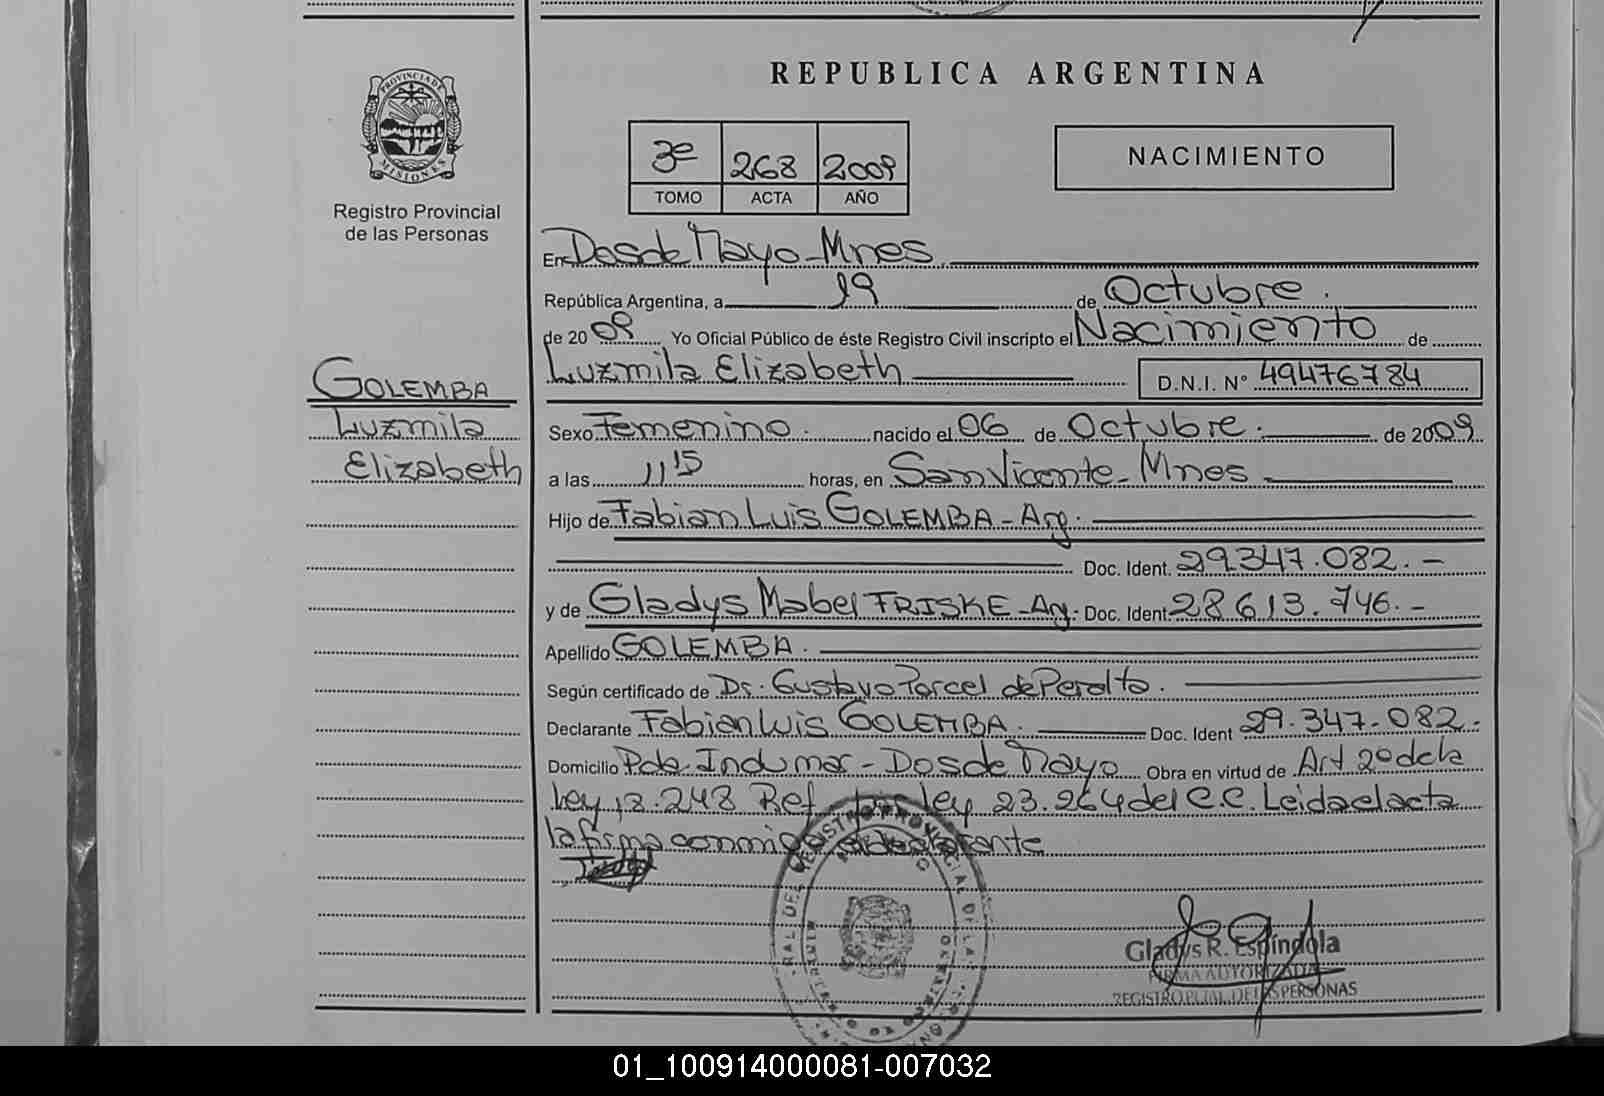 REPUBLICA ARGENTINA
PROVINCIA DE
MISIONES
Registro Provincial
de las Personas
3º 268 2009
TOMO ACTA AÑO
NACIMIENTO
En Dos de Mayo - Mnes
República Argentina, a 19 de Octubre.
de 2009 Yo Oficial Público de éste Registro Civil inscripto el Nacimiento de
Luzmila Elizabeth D.N.I. Nº 49476784
GOLEMBA
Luzmila
Elizabeth
Sexo Femenino. nacido el 06 de Octubre. de 2009
a las 11 15 horas, en San Vicente - Mnes
Hijo de Fabian Luis GOLEMBA - Arg.
Doc. Ident. 29.347.082.-
y de Gladys Mabel FRISKE - Arg. Doc. Ident. 28.613.746.-
Apellido GOLEMBA.
Según certificado de Dr. Gustavo Porcel de Peralta.
Declarante Fabian Luis GOLEMBA. Doc. Ident 29.347.082.-
Domicilio Pda. Indumar - Dos de Mayo Obra en virtud de Art 2º de la
Ley 18.248 Ref. por ley 23.264 del C.C. Leida el acta
la firma conmigo el declarante
Gladys R. Espíndola
FIRMA AUTORIZADA
REGISTRO PCIAL. DE LAS PERSONAS
01_100914000081-007032